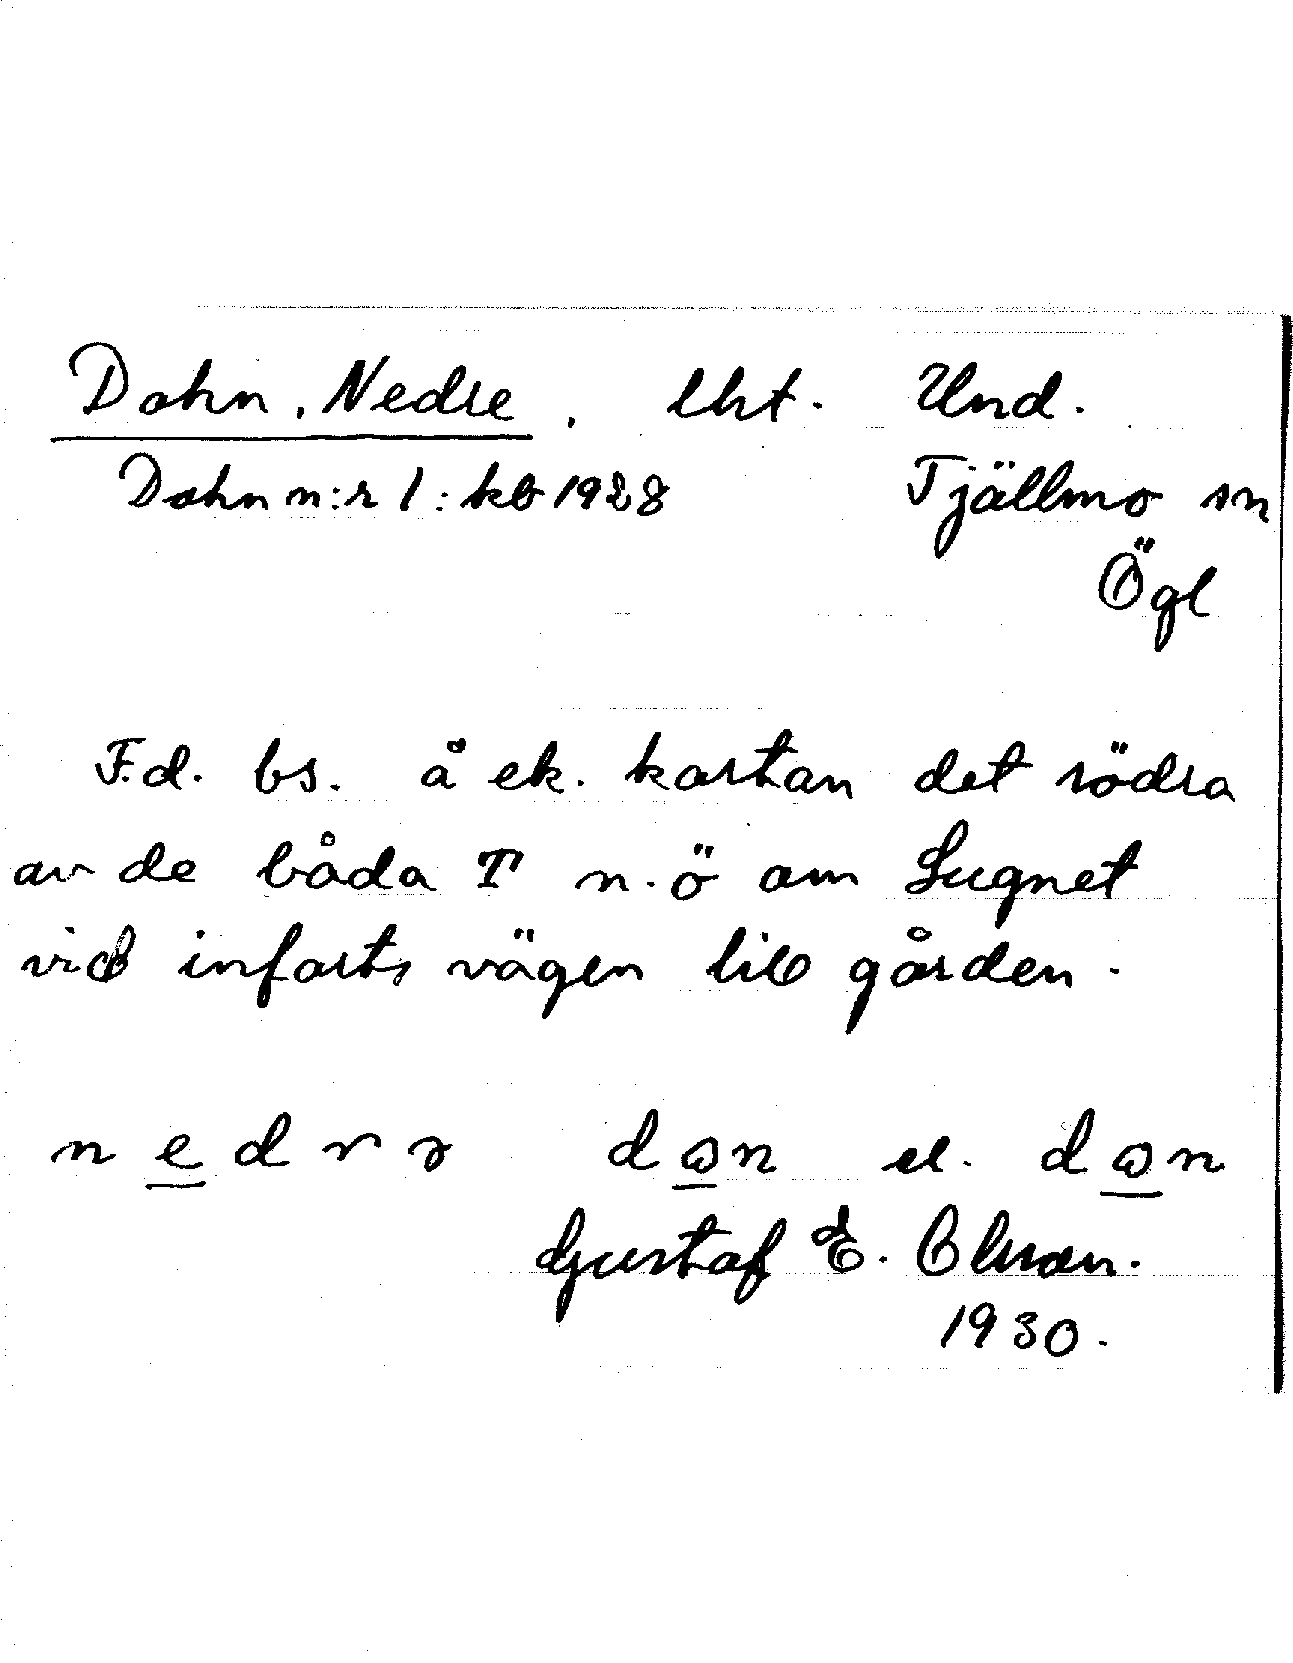 Dohn, Nedre, lht. Und.
Dohn n:r 1: kb 1928 Tjällmo sn
Ögl
F.d. bs. å ek. kartan det södra
av de båda T n.ö om Lugnet
vid infarts vägen till gården.
n e d r ɜ dɷn el. dɷn
Gustaf E. Olsson.
1930.